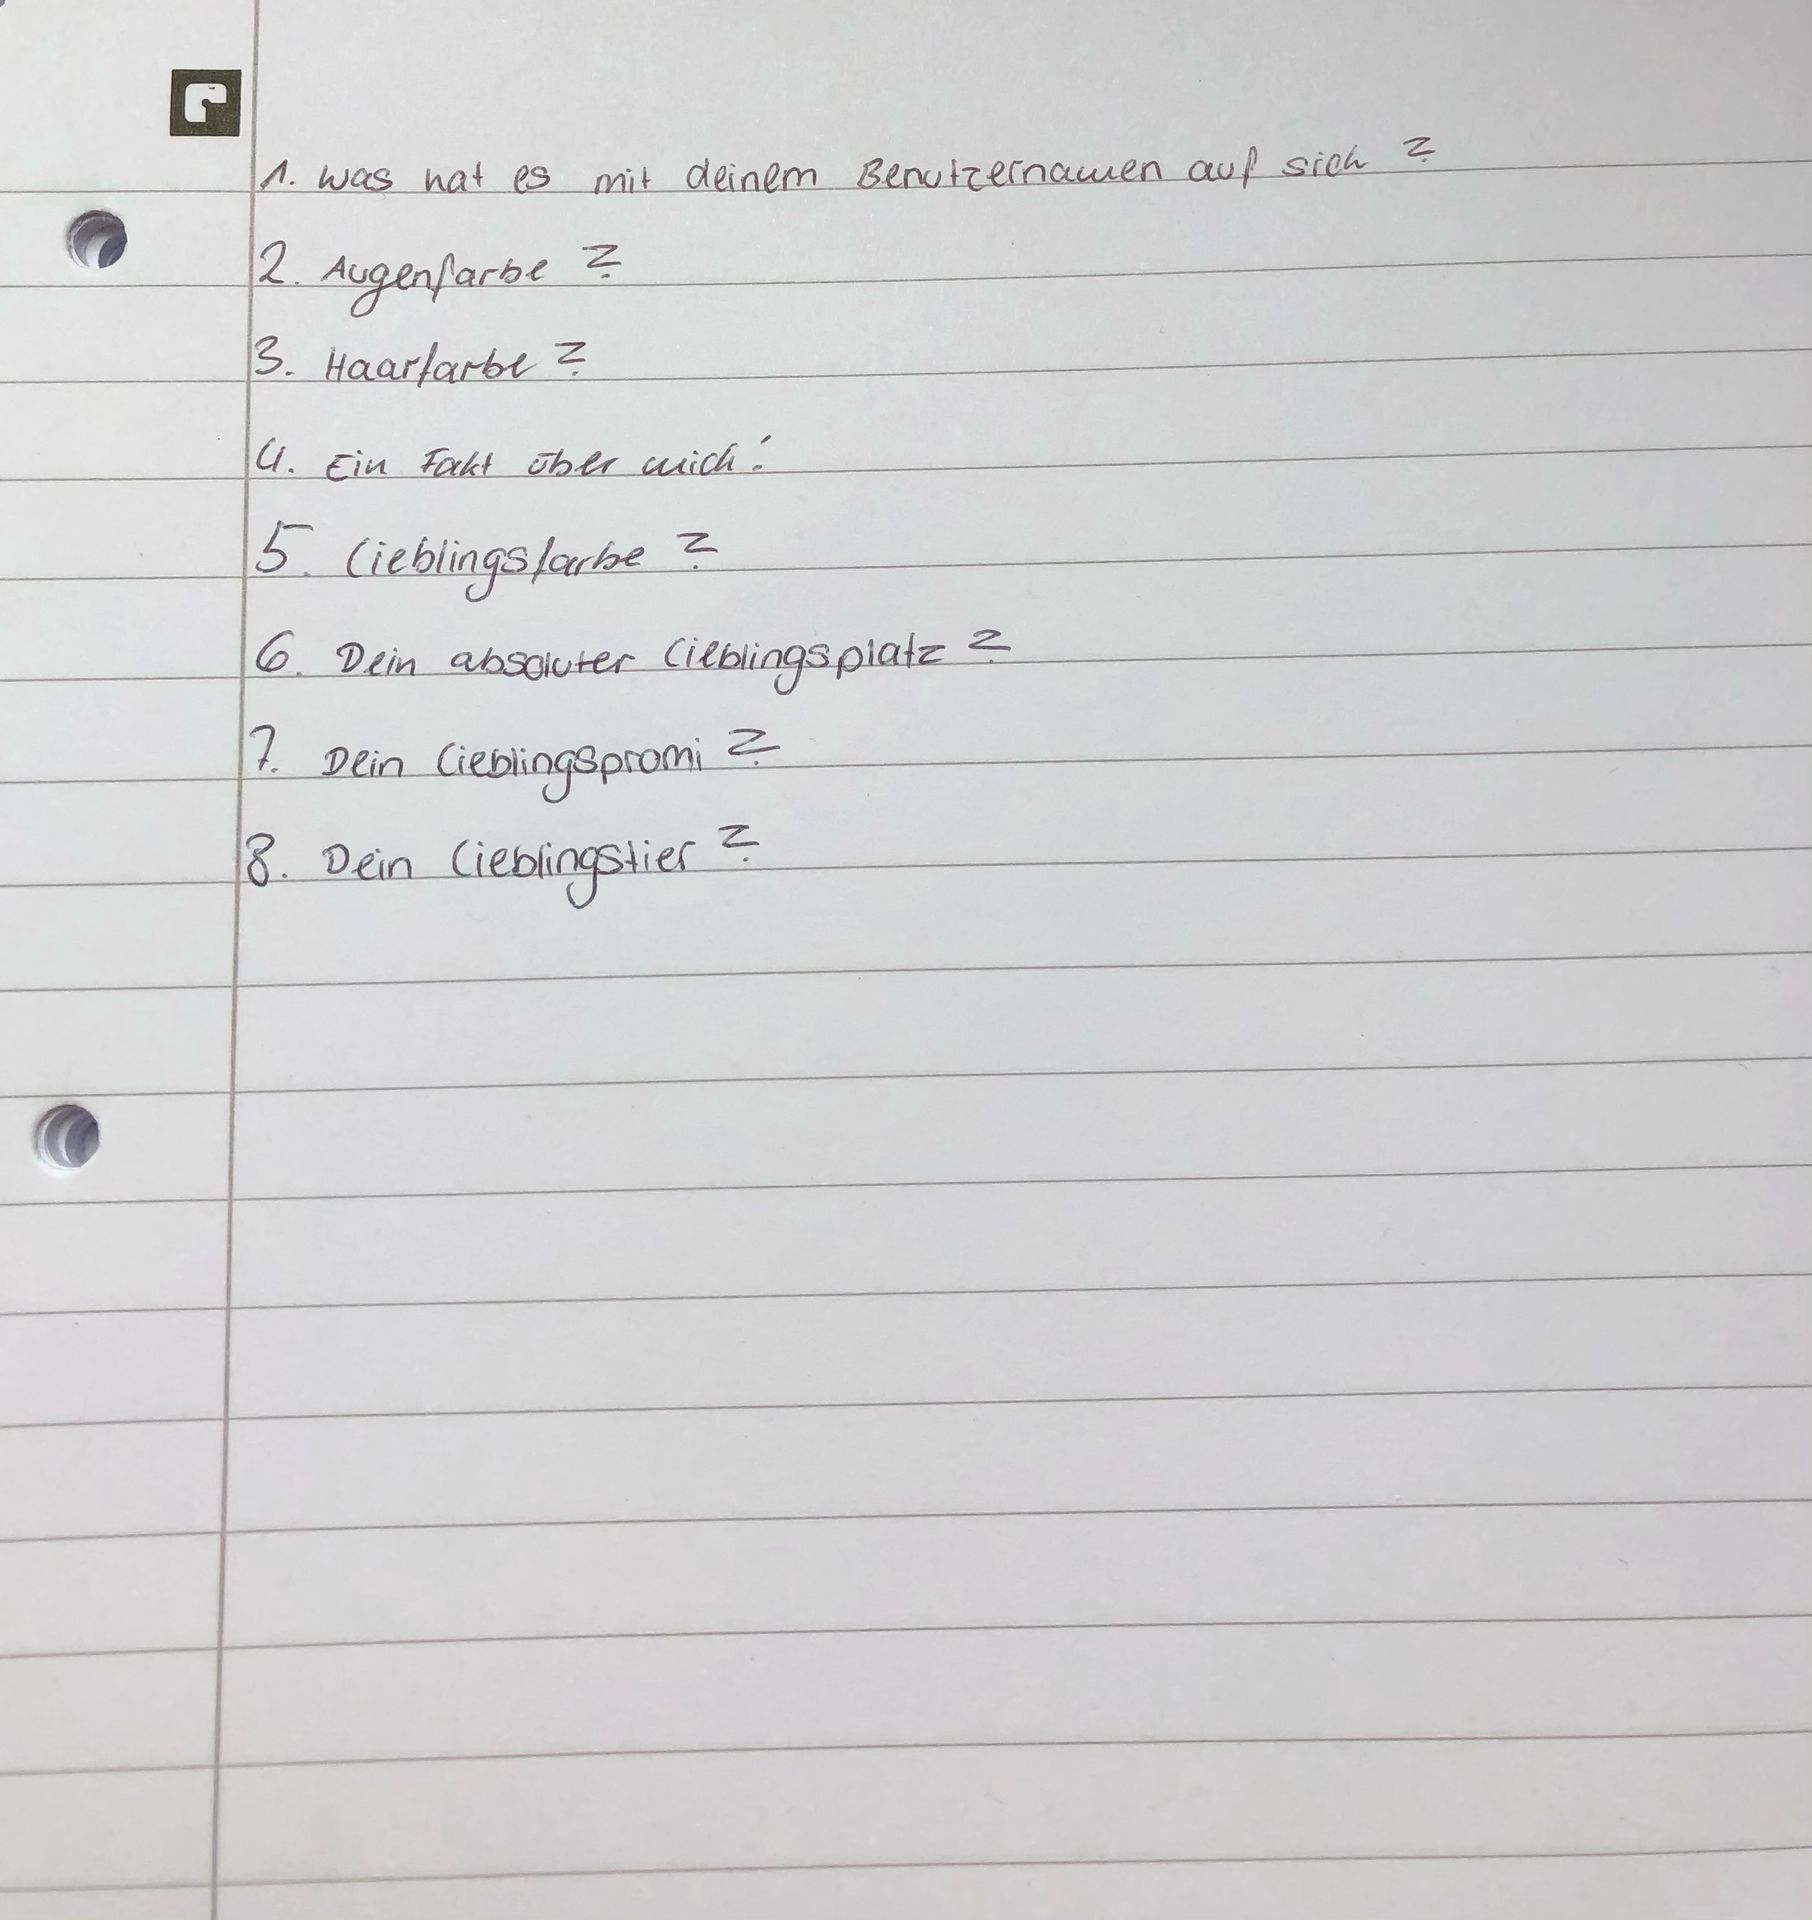 1. Was hat es mit deinem Benutzernamen auf sich?
2. Augenfarbe?
3. Haarfarbe?
4. Ein Fakt über mich:
5. Lieblingsfarbe?
6. Dein absoluter Lieblingsplatz?
7. Dein Lieblingspromi?
8. Dein Lieblingstier?